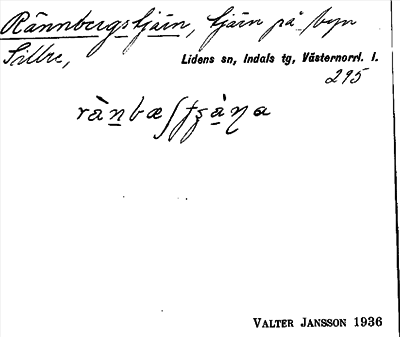 Rännbergstjärn, tjärn på byn
Sillre,
Lidens sn, Indals tg, Västernorrl. l.
295
rànbæʃtʂàɳa
VALTER JANSSON 1936